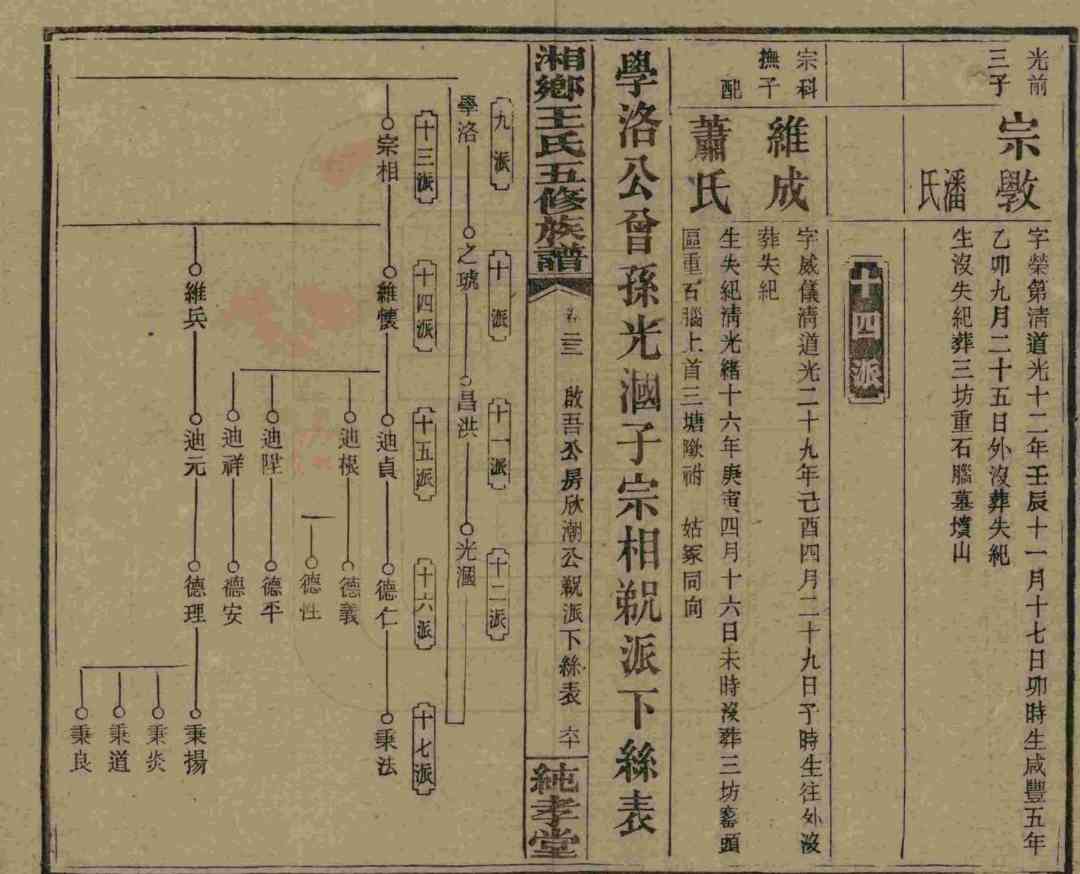 光前
三子
宗斅
字榮第清道光十二年壬辰十一月十七日卯時生咸豐五年
乙卯九月二十五日外沒葬失紀
潘氏
生沒失紀葬三坊重石腦墓墳山
十四派
宗科
撫子
維成
字威儀清道光二十九年己酉四月二十九日子時生往外沒
葬失紀
配
蕭氏
生失紀清光緒十六年庚寅四月十六日未時沒葬三坊窰頭
區重石腦上首三塘墘祔 姑冢同向
學洛公曾孫光涸子宗相㓒派下絲表
湘鄉王氏五修族譜
卷二三
啟吾公房欣潮公㓒派下絲表
六十
純孝堂
九派
十派
十一派
十二派
學洛
之琥
昌洪
光涸
十三派
十四派
十五派
十六派
十七派
宗相
維懷
迪貞
德仁
秉法
迪根
德義
德性
迪陞
德平
迪祥
德安
維兵
迪元
德理
秉揚
秉炎
秉道
秉良